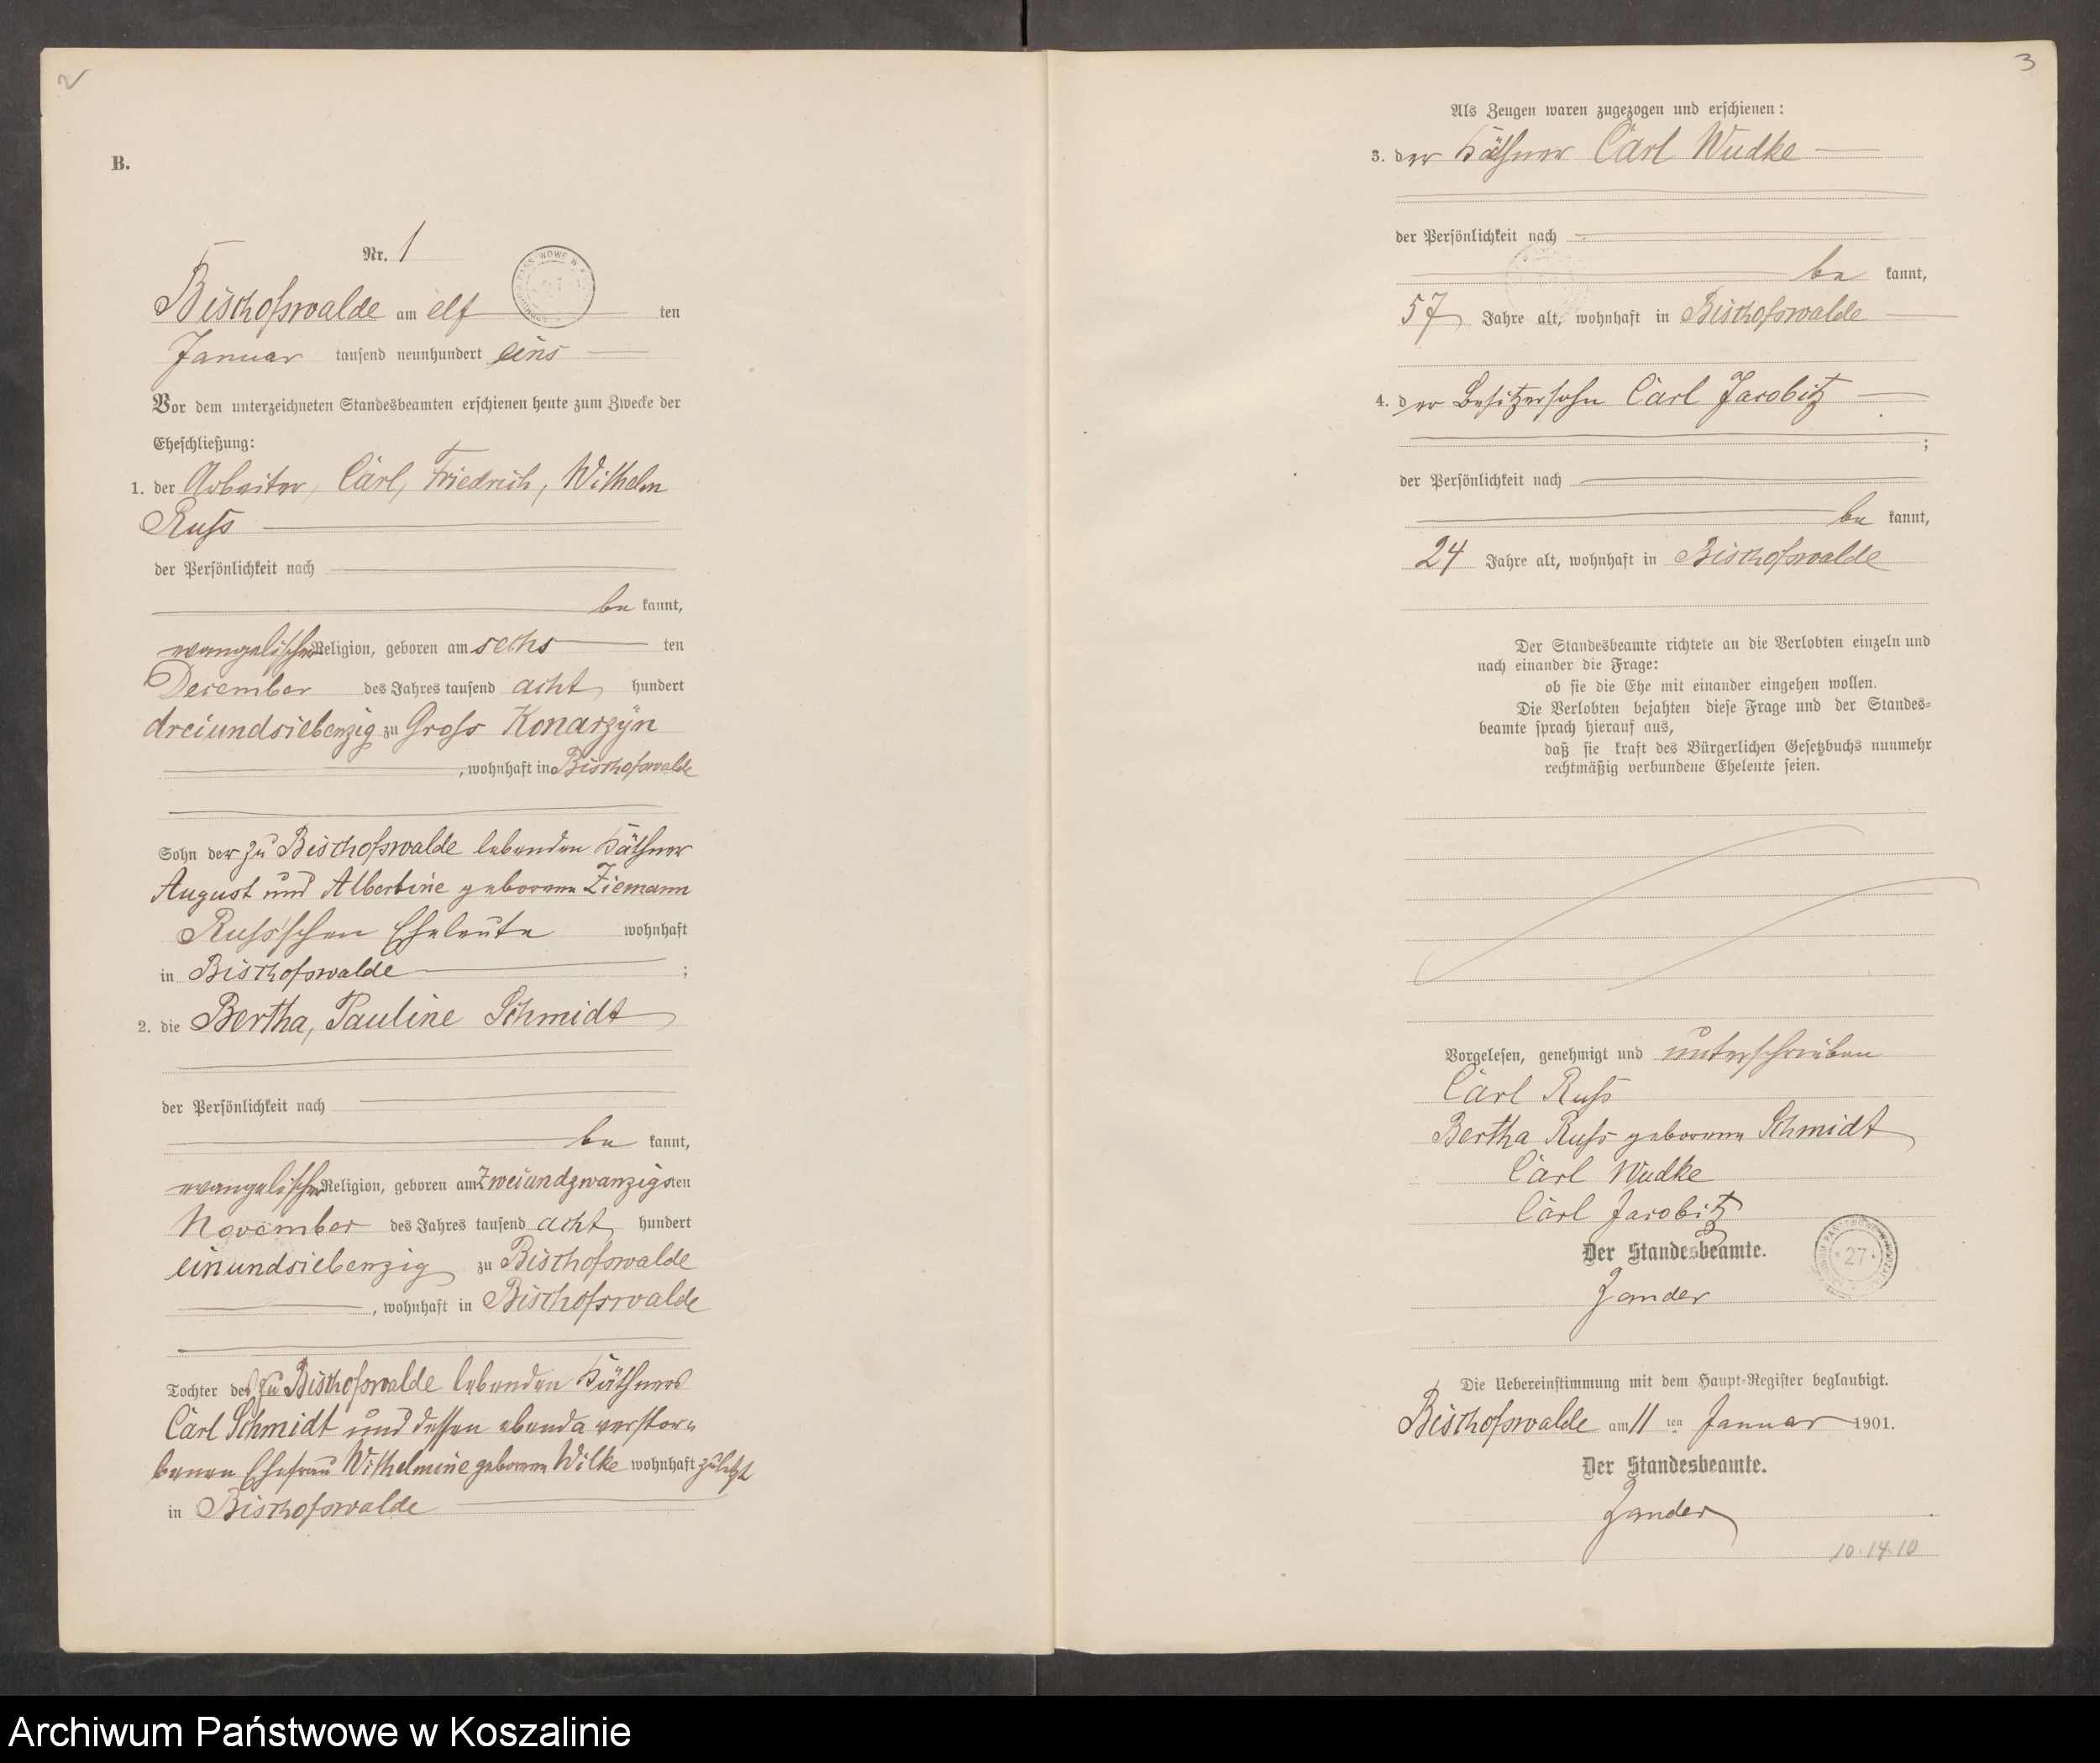 2
B.
Nr. 1
Bischofswalde am elf ten
Januar tausend neunhundert eins
Vor dem unterzeichneten Standesbeamten erschienen heute zum Zwecke der
Eheschließung:
1. der Arbeiter, Carl, Friedrich, Wilhelm
Russ
der Persönlichkeit nach
be kannt,
evangelischer Religion, geboren am sechs ten
December des Jahres tausend acht hundert
dreiundsiebenzig zu Gross Konarzyn
, wohnhaft in Bischofswalde
Sohn der zu Bischofswalde lebenden Käthner
August und Albertine geborene Ziemann
Russ'schen Eheleute wohnhaft
in Bischofswalde ;
2. die Bertha, Pauline Schmidt
der Persönlichkeit nach
be kannt,
evangelischer Religion, geboren am zweiundzwanzigsten
November des Jahres tausend acht hundert
einundsiebenzig zu Bischofswalde
, wohnhaft in Bischofswalde
Tochter des zu Bischofswalde lebenden Käthners
Carl Schmidt und dessen ebenda verstor-
benen Ehefrau Wilhelmine geborene Wilke wohnhaft zuletzt
in Bischofswalde
3
Als Zeugen waren zugezogen und erschienen:
3. der Käthner Carl Wudke
der Persönlichkeit nach
be kannt,
57 Jahre alt, wohnhaft in Bischofswalde
4. der Besitzersohn Carl Jacobitz
;
der Persönlichkeit nach
be kannt,
24 Jahre alt, wohnhaft in Bischofswalde
Der Standesbeamte richtete an die Verlobten einzeln und
nach einander die Frage:
ob sie die Ehe mit einander eingehen wollen.
Die Verlobten bejahten diese Frage und der Standes-
beamte sprach hierauf aus,
daß sie kraft des Bürgerlichen Gesetzbuchs nunmehr
rechtmäßig verbundene Eheleute seien.
Vorgelesen, genehmigt und unterschrieben
Carl Russ
Bertha Russ geborene Schmidt
Carl Wudke
Carl Jacobitz
Der Standesbeamte.
Zander
27
Die Uebereinstimmung mit dem Haupt-Register beglaubigt.
Bischofswalde am 11 ten Januar 1901.
Der Standesbeamte.
Zander
10.14.10
Archiwum Państwowe w Koszalinie